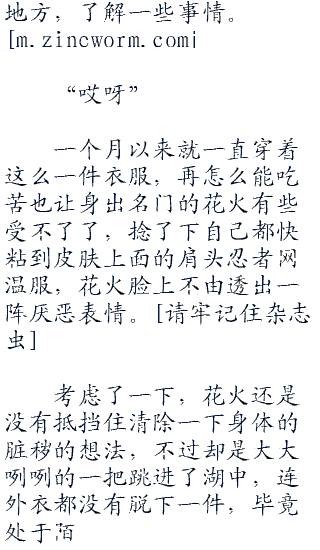 地方，了解一些事情。
[m.zincworm.com]
“哎呀”
一个月以来就一直穿着
这么一件衣服，再怎么能吃
苦也让身出名门的花火有些
受不了了，捻了下自己都快
粘到皮肤上面的肩头忍者网
温服，花火脸上不由透出一
阵厌恶表情。[请牢记住杂志
虫]
考虑了一下，花火还是
没有抵挡住清除一下身体的
脏秽的想法，不过却是大大
咧咧的一把跳进了湖中，连
外衣都没有脱下一件，毕竟
处于陌